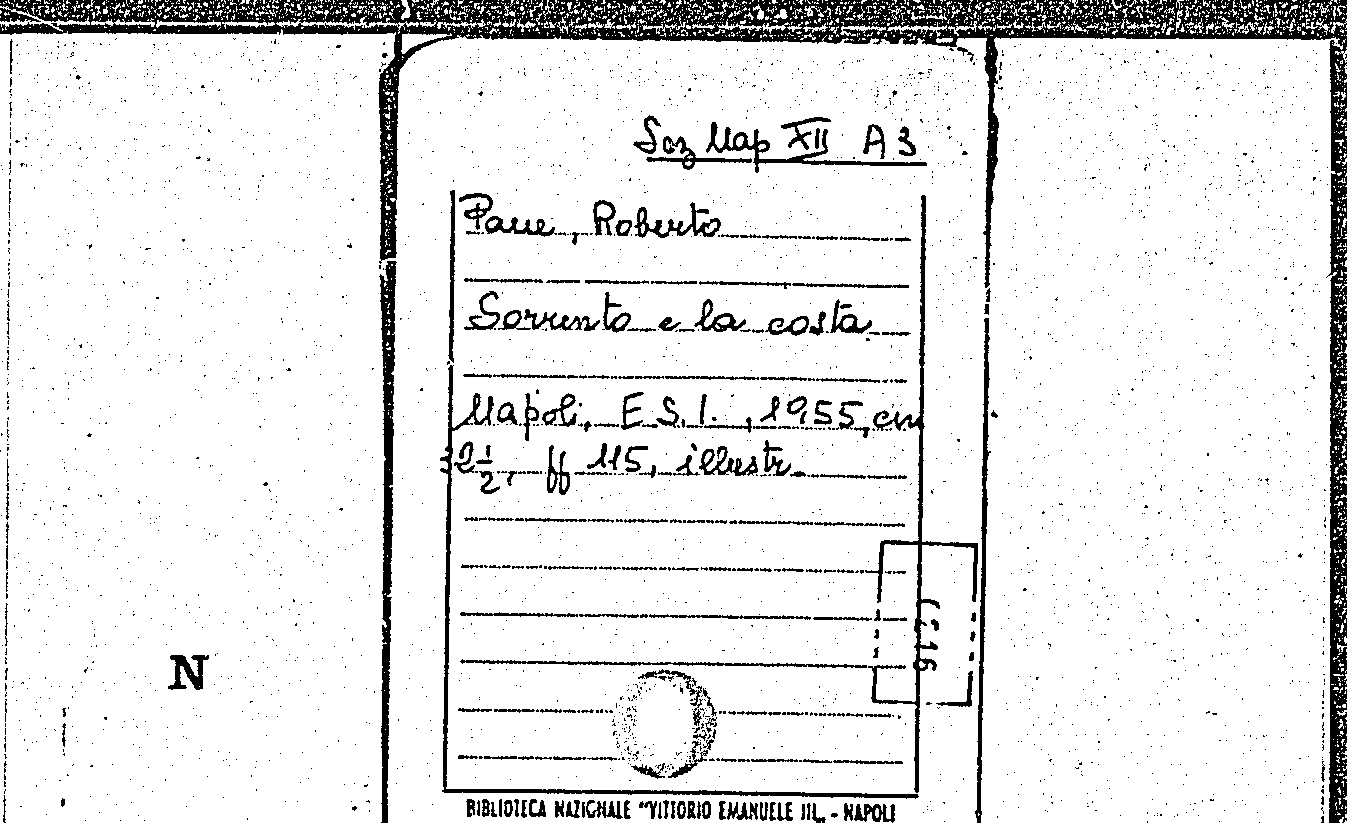 Soz Map XII A 3
Pane, Roberto
Sorrento e la costa
Napoli, E.S.I., 1955, cm
32 1/2, ff 115, illustr.
N
BIBLIOTECA NAZIONALE "VITTORIO EMANUELE III„ - NAPOLI